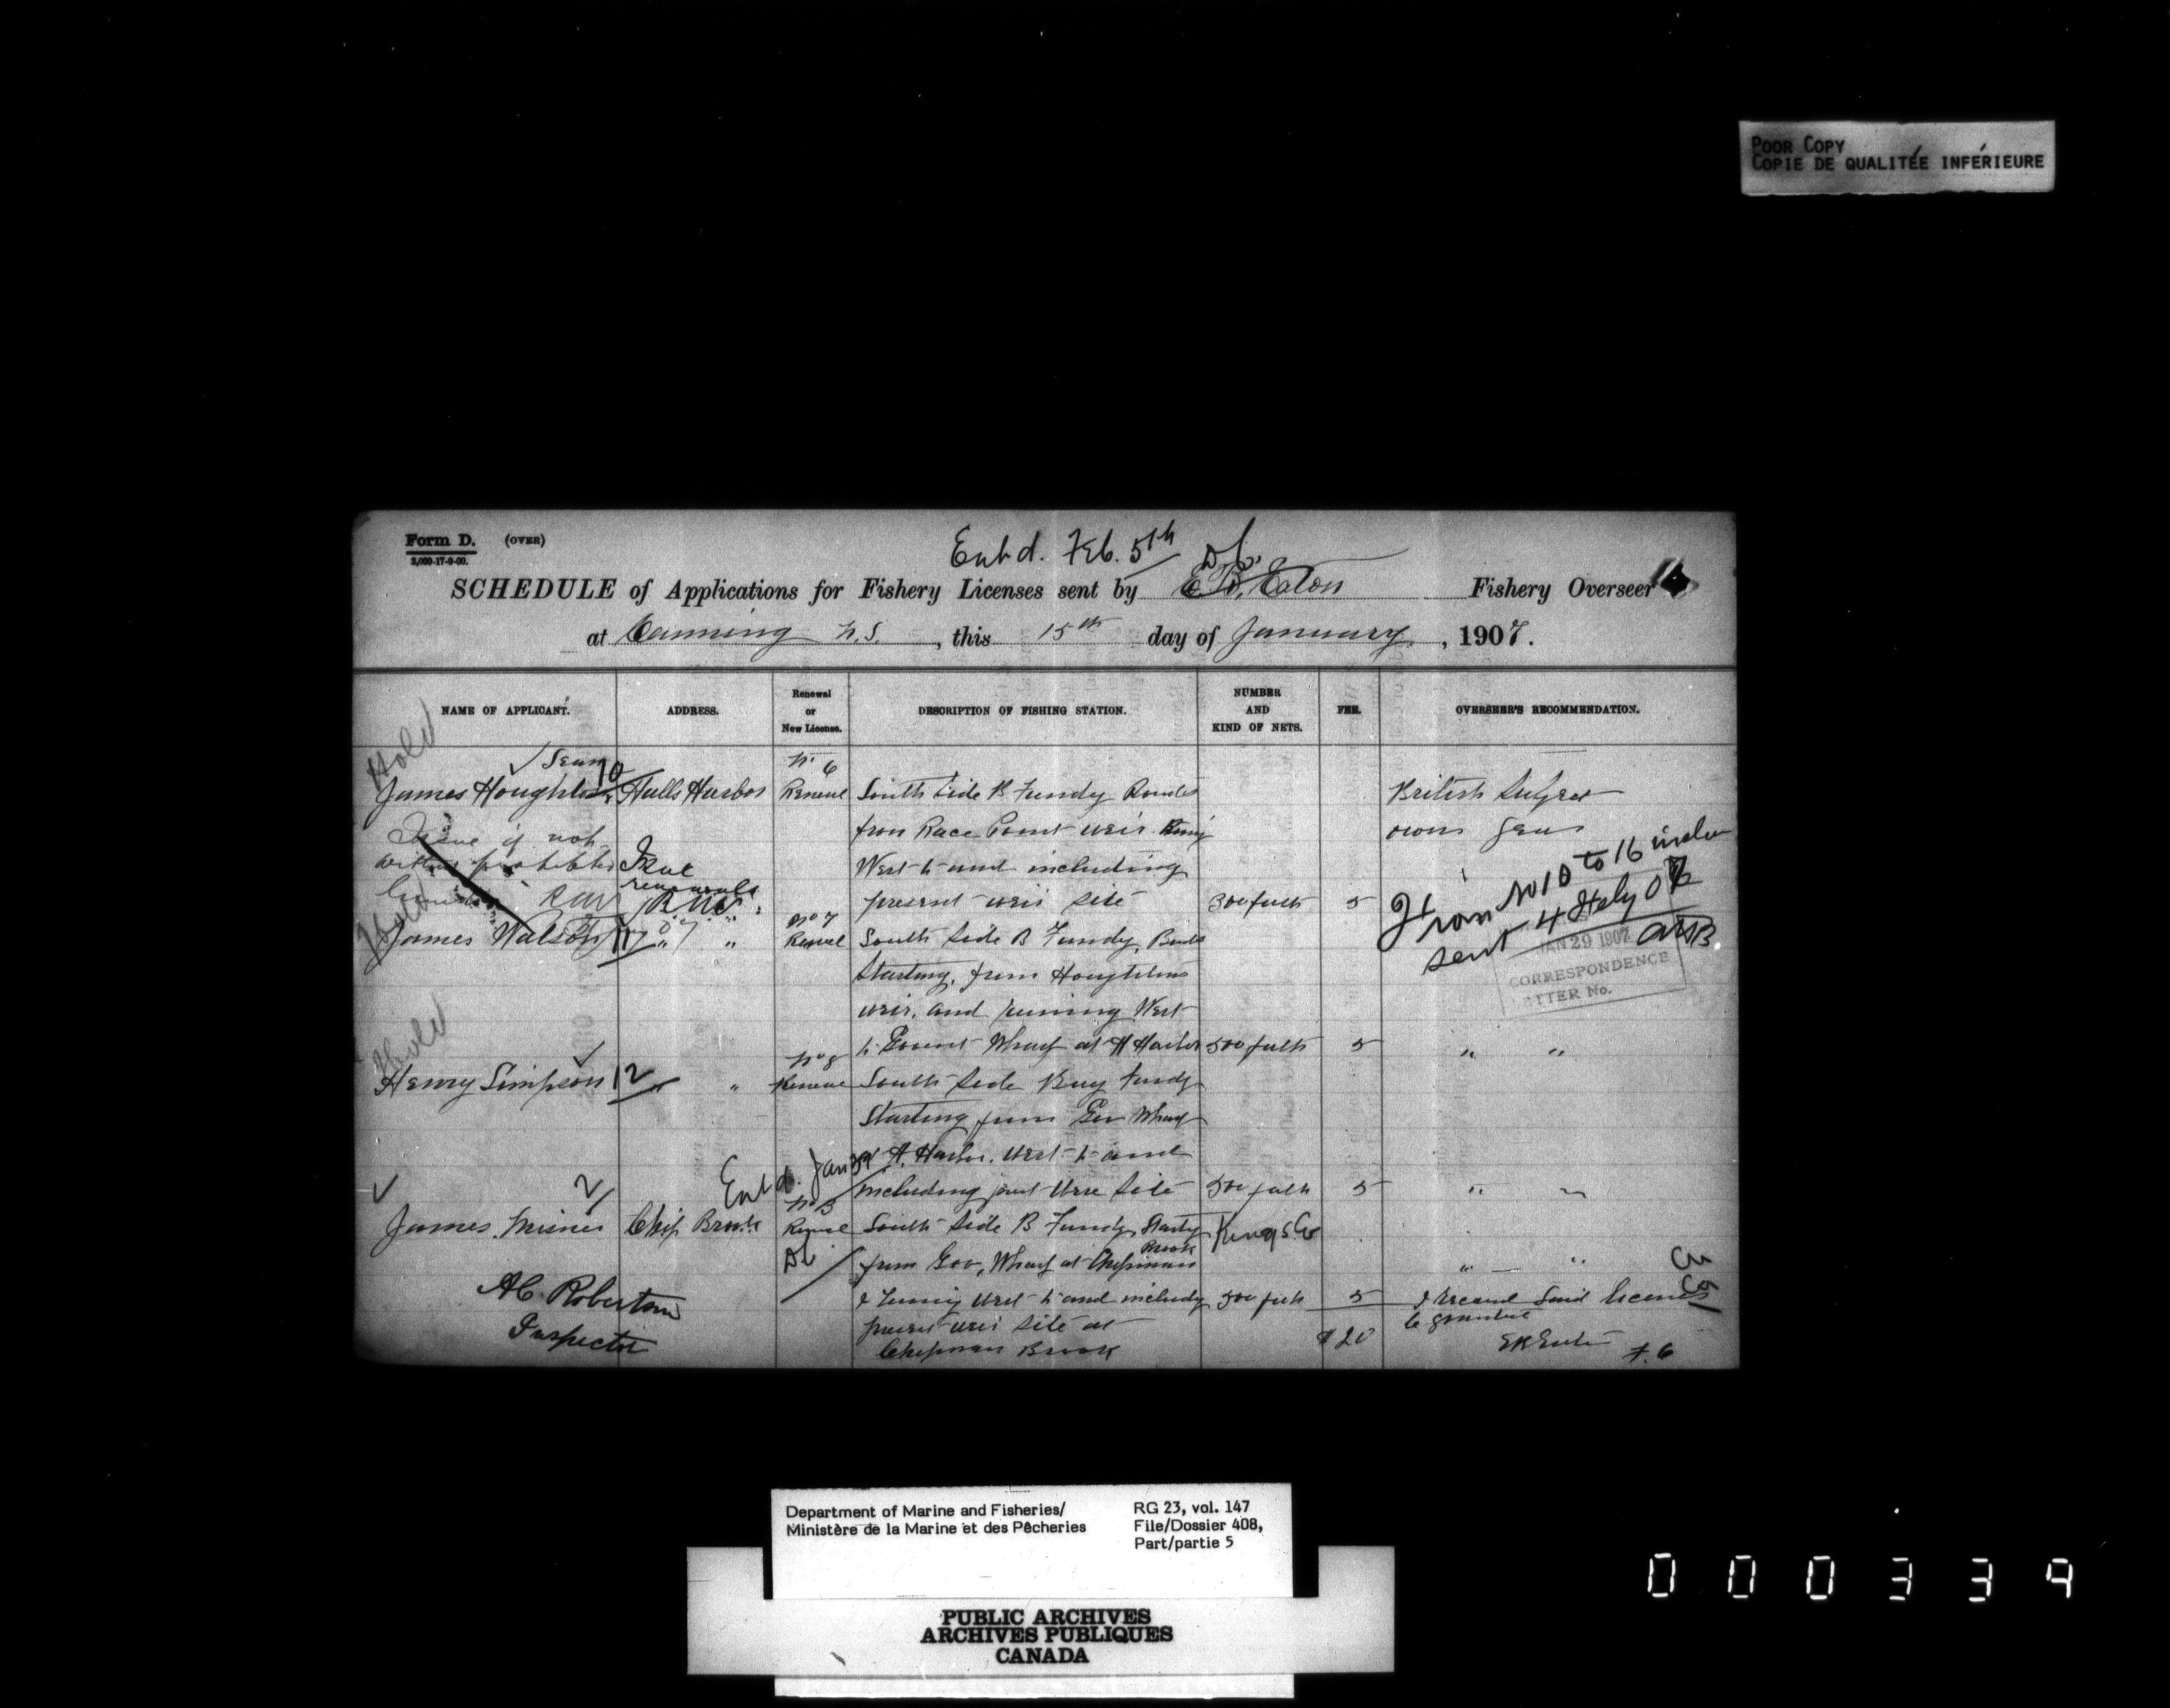 POOR COPY
COPIE DE QUALITÉE INFÉRIEURE
Form D. (OVER)
2,000-17-9-00.
Entd. Feb. 5th
SCHEDULE of Applications for Fishery Licenses sent by E B Eaton Fishery Overseer
at Canning N.S., this 15th day of January, 1907.
NAME OF APPLICANT. ADDRESS. Renewal or New License. DESCRIPTION OF FISHING STATION. NUMBER AND KIND OF NETS. FEE. OVERSEER'S RECOMMENDATION.
Hold
10 No 6
James Houghton Halls Harbor Renewal South Side B Fundy Bounds British Subject
from Race Point weir owns
Issue if not
West to and including
Issue renewals
present weir site 300 fath 5
From No 10 to 16 inclu
sent 4 Feby 07
Hold
No 7
James Watson 11 " " Renewal South Side B Fundy, Bounds
JAN 29 1907
CORRESPONDENCE
LETTER No.
Starting from Houghtons
weir, and running West
to Goverment Wharf at H Harbor 500 fath 5 " "
Hold
No 8
Henry Simpson 12 " " Renewal South Side Bay Fundy
Starting from Gov Wharf
at H. Harbor. West to and
Entd. Jan
including weir Site 500 fath 5 " "
2
James Miner Chip Brook Renewal South Side B Fundy Starting Kings Co
from Gov, Wharf at Chipman Brook " "
& running West to and including 500 fath 5 I recomd Said licences
present weir site at to granted
Chipman Brook $20
AC Robertson
Inspector
F. 6
351
Department of Marine and Fisheries/
Ministère de la Marine et des Pêcheries
RG 23, vol. 147
File/Dossier 408,
Part/partie 5
PUBLIC ARCHIVES
ARCHIVES PUBLIQUES
CANADA
000339